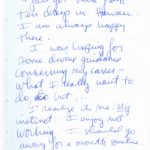 I just got back from
ten days in Hawaii.
I am always happy
there.
I was hoping for
some divine guidance
concerning my career -
what I really want to
do but...
I realize it me. My
instinct. I enjoy not
working. I should go
away for a month sometime